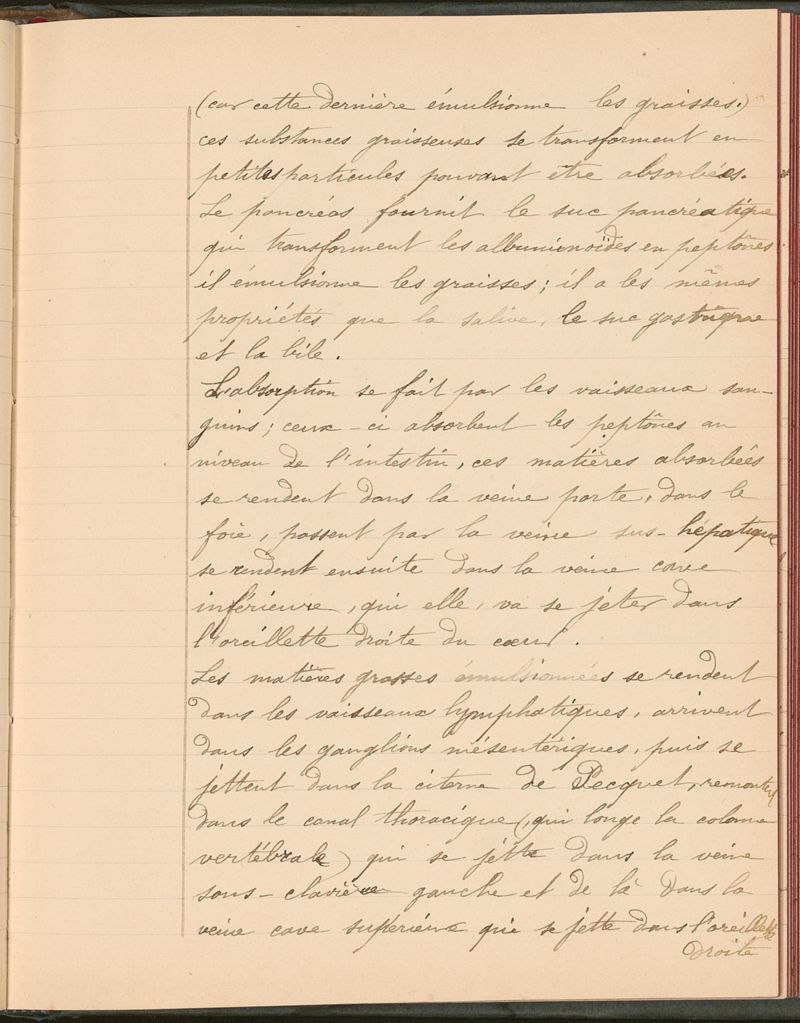 (car cette dernière émulsionne les graisses.)
ces substances graisseuses se transforment en
petites particules pouvant être absorbées.
Le pancréas fournit le suc pancréatique
qui transforment les albuminoïdes en peptônes
il émulsionne les graisses ; il a les mêmes
propriétés que la salive, le suc gastrique
et la bile.
L'absorption se fait par les vaisseaux san-
guins ; ceux-ci absorbent les peptônes au
niveau de l'intestin, ces matières absorbées
se rendent dans la veine porte, dans le
foie, passent par la veine sus-hépatique
se rendent ensuite dans la veine cave
inférieure, qui elle, va se jeter dans
l'oreillette droite du cœur.
Les matières grasses émulsionnées se rendent
dans les vaisseaux lymphatiques, arrivent
dans les ganglions mésentériques, puis se
jettent dans la citerne de Pecquet, remontent
dans le canal thoracique (, qui longe la colonne
vertébrale) qui se jette dans la veine
sous-clavière gauche et de là dans la
veine cave supérieure qui se jette dans l'oreillette
droite